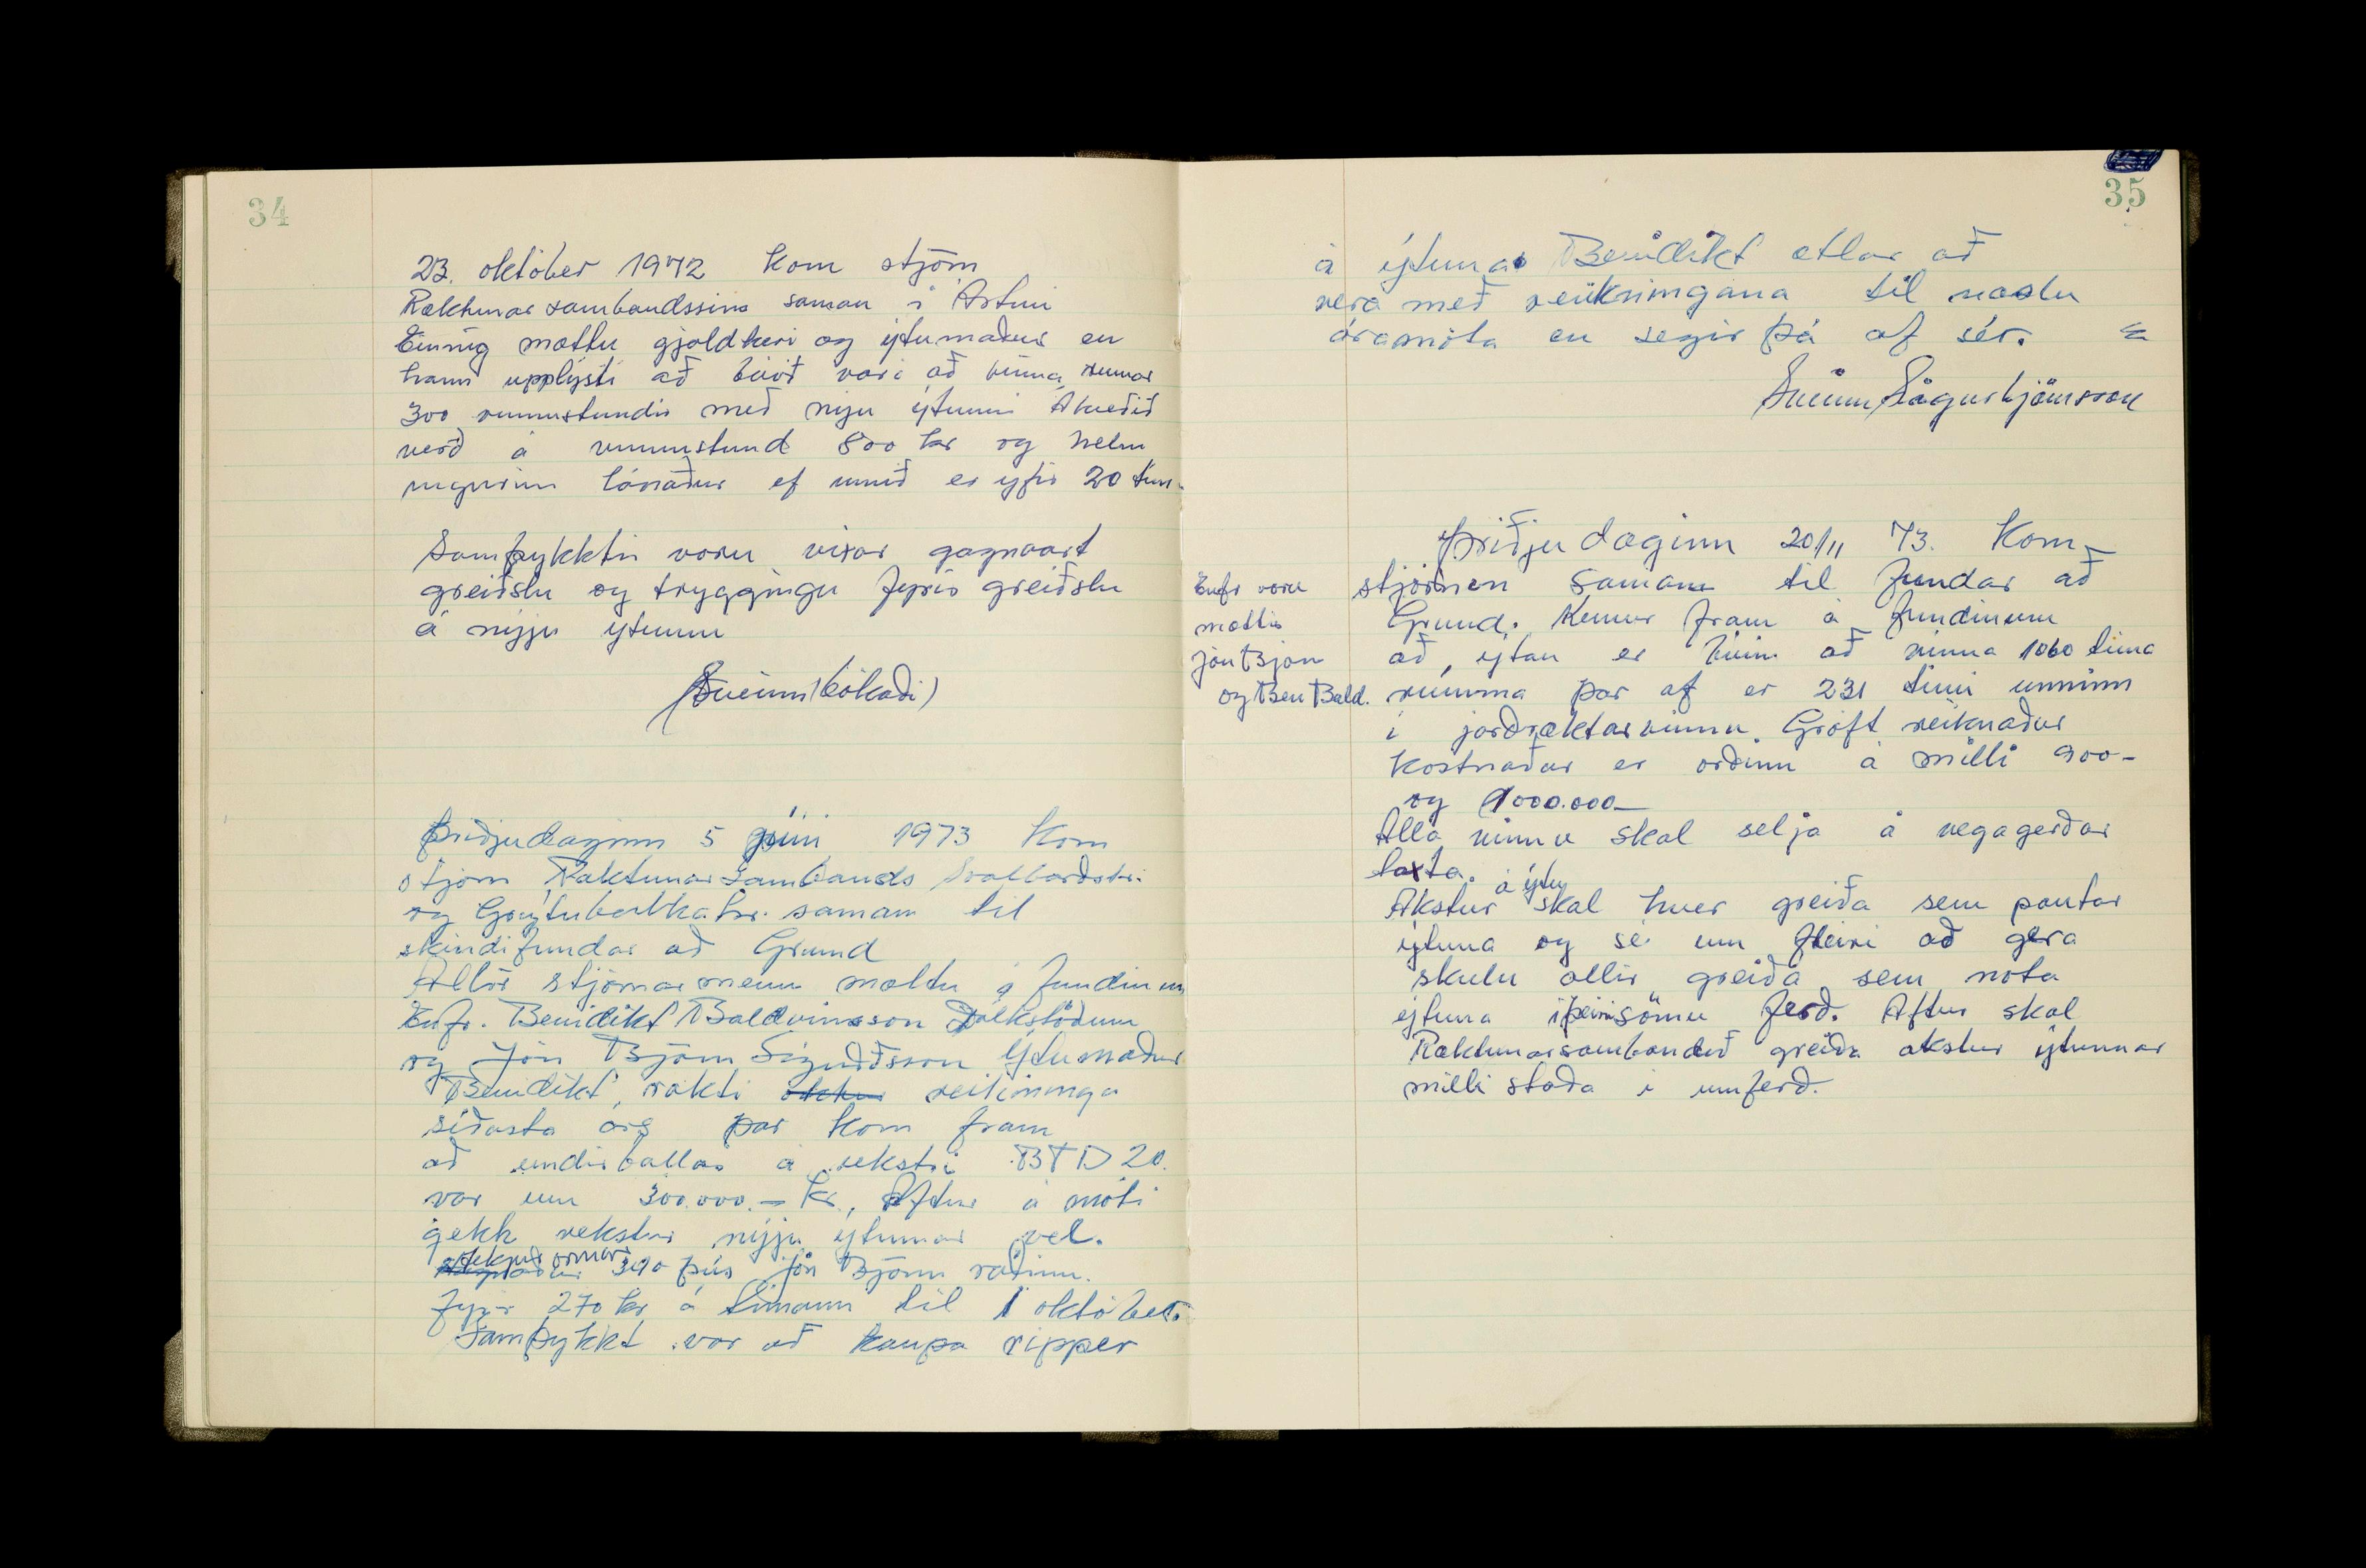 34
23. október 1972 kom stjórn
Ræktunarsambandssins saman í Ártúni
Einnig mættu gjaldkeri og ýtumaður en
hann upplýsti að búið væri að vinna rúmar
300 vinnustundir með nýju ýtunni Ákveðið
verð á vinnustund 800 kr og helm
ingurinn lánaður ef unnið er yfir 20 tíma
Samþykktir voru vixar gagnvart
greiðslu og tryggingu fyrir greiðslu
á nýju ýtunni
(Sveinn bókaði)
Þriðjudaginn 5 júní 1973 kom
stjórn Ræktunarsambands Svalbarðstr.
og Grýtubakkahr. saman til
skindifundar að Grund
Allir stjórnarmenn mættu á fundinum
Enfr. Benidikt Baldvinsson Dálkstöðum
og Jón Björn Sigurðsson ýtumaður
Benidikt rakti reikninga
síðasta árs þar kom fram
að undirballas á rekstri BTD 20.
var um 300.000.- kr., Aftur á móti
gekk rekstur nýju ýtunnar vel.
390 þús Jón Björn ráðinn.
fyrir 270 kr á tímann til 1 október.
Samþykkt var að kaupa ripper
35
á ýtuna. Benidikt ætlar að
vera með reikningana til næstu
áramóta en segir þá af sér.
Sveinn Sigurbjörnsson
Þriðjudaginn 20/11 73. Kom
stjórnen saman til fundar að
Enfr voru
mættir
Jón Björn
og Ben Bald.
Grund. Kemur fram á fundinum
að ýtan er búin að vinna 1060 tíma
rúmma þar af er 231 tími unninn
í jarðræktarvinnu. Gróft reiknaður
kostnaðar er orðinn á milli 900-
og 1000.000-
Alla vinnu skal selja á vegagerðar
taxta.
Akstur á ýtu skal hver greiða sem pantar
ýtuna og sé um fleiri að gera
skulu allir greiða sem nota
ýtuna í þeirri sömu ferð. Aftur skal
Ræktunarsambandið greiða akstur ýtunnar
milli staða í umferð.